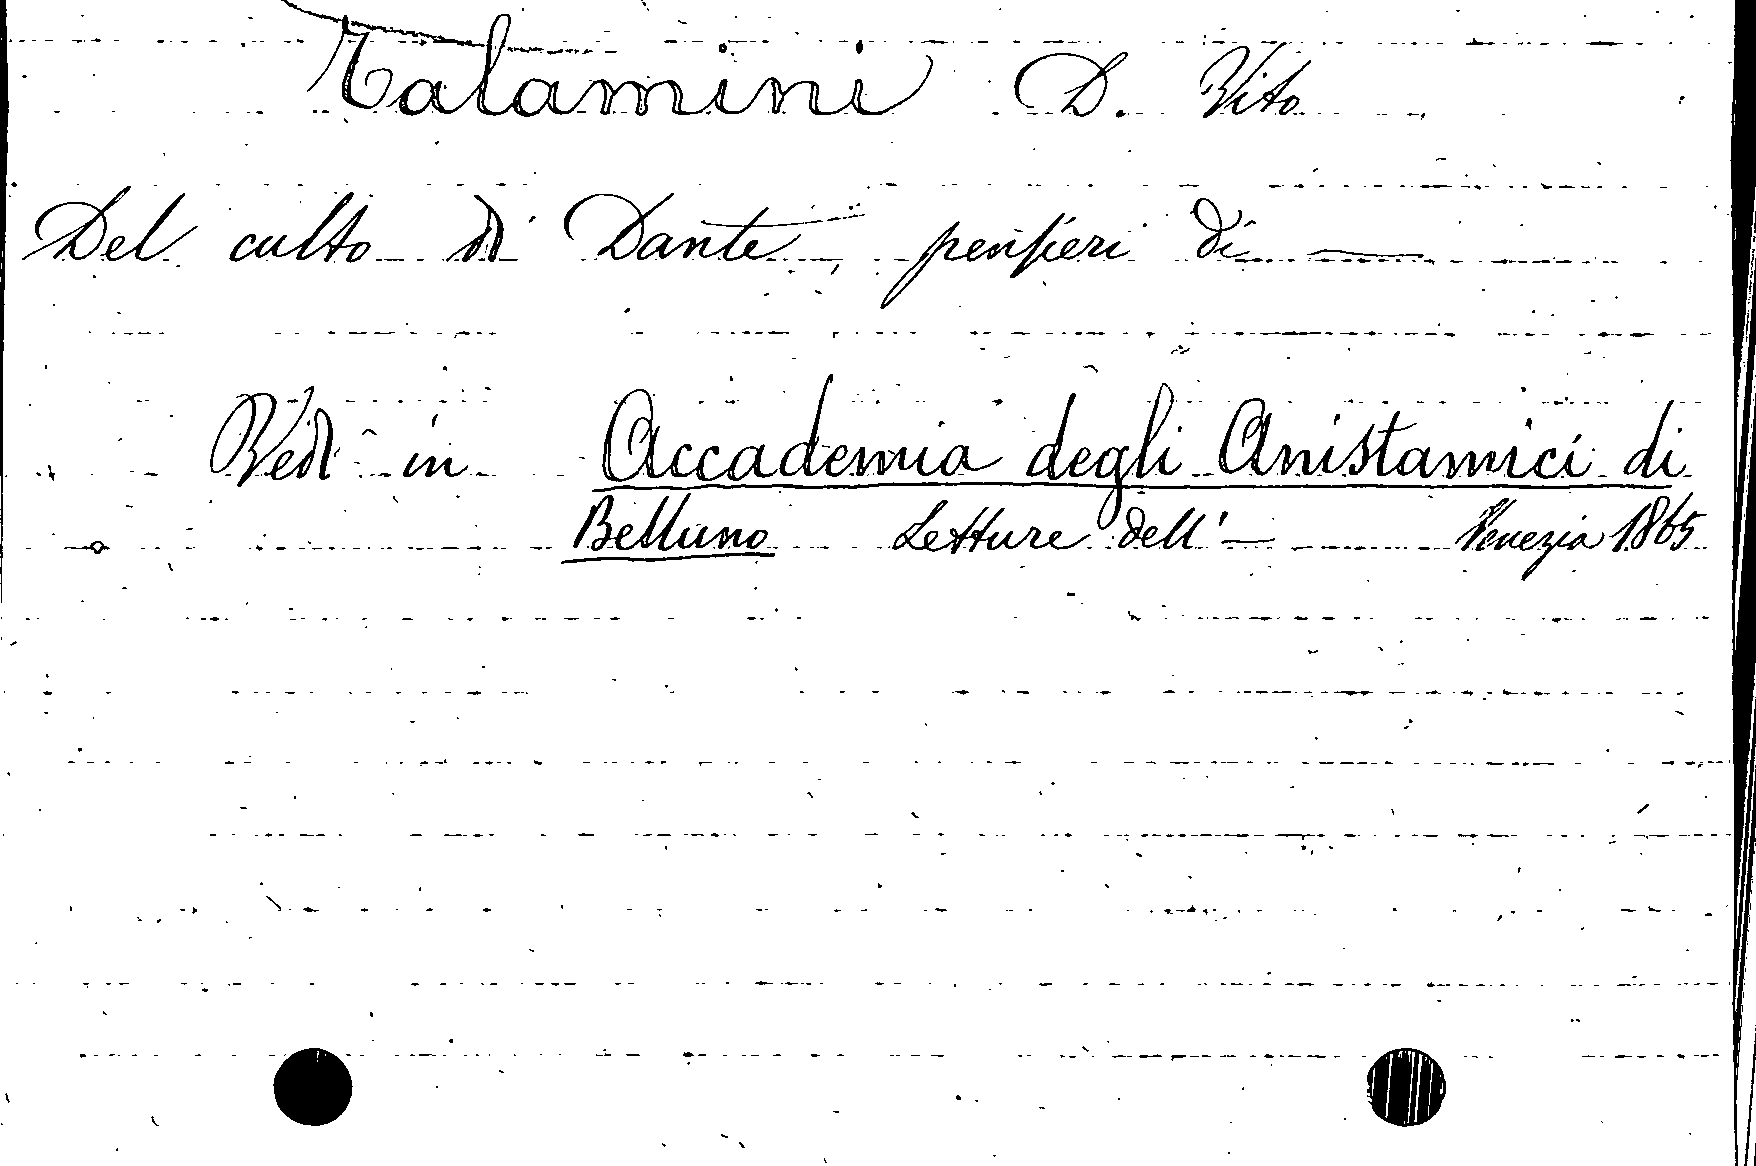 Talamini D. Vito
Del culto di Dante, pensieri di —
Vedi in Accademia degli Anistamici di
Belluno Letture dell'— Venezia 1865